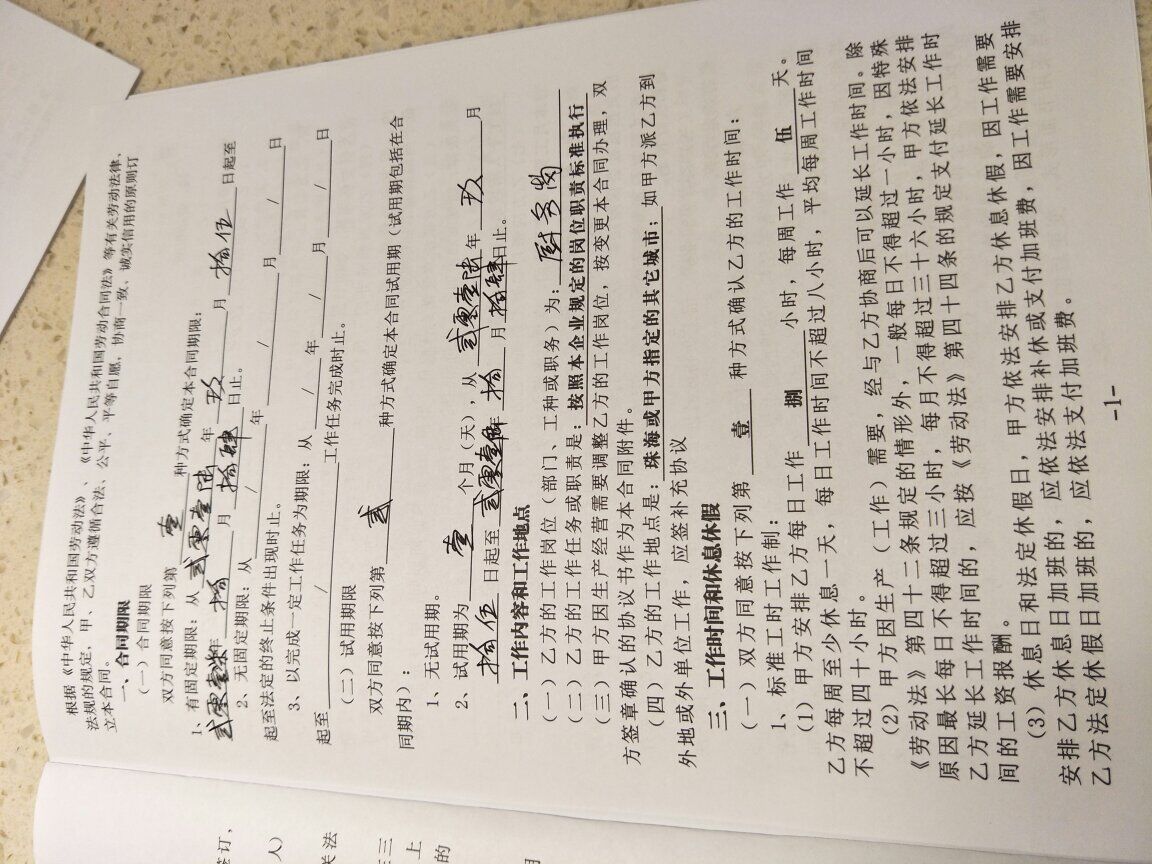 根据《中华人民共和国劳动法》、《中华人民共和国劳动合同法》等有关劳动法律、
法规的规定，甲、乙双方遵循合法、公平、平等自愿、协商一致、诚实信用的原则订
立本合同。
一、合同期限
（一）合同期限
双方同意按下列第 壹 种方式确定本合同期限：
1、有固定期限：从 贰零壹陆 年 玖 月 拾伍 日起至
年 拾 月 拾肆 日止。
2、无固定期限：从 / 年 / 月 / 日
起至法定的终止条件出现时止。
3、以完成一定工作任务为期限：从 / 年 / 月 / 日
起至 / 工作任务完成时止。
（二）试用期限
双方同意按下列第 贰 种方式确定本合同试用期（试用期包括在合
同期内）：
1、无试用期。
2、试用期为 壹 个月（天），从 贰零壹陆 年 玖 月
拾伍 日起至 年 拾 月 拾肆 日止。
二、工作内容和工作地点
（一）乙方的工作岗位（部门、工种或职务）为：厨务
（二）乙方的工作任务或职责是：按照本企业规定的岗位职责标准执行
（三）甲方因生产经营需要调整乙方的工作岗位，按变更本合同办理，双
方签章确认的协议书作为本合同附件。
（四）乙方的工作地点是：珠海或甲方指定的其它城市；如甲方派乙方到
外地或外单位工作，应签补充协议
三、工作时间和休息休假
（一）双方同意按下列第 壹 种方式确认乙方的工作时间：
1、标准工时工作制：
（1）甲方安排乙方每日工作 捌 小时，每周工作 伍 天。
乙方每周至少休息一天，每日工作时间不超过八小时，平均每周工作时间
不超过四十小时。
（2）甲方因生产（工作）需要，经与乙方协商后可以延长工作时间。除
《劳动法》第四十二条规定的情形外，一般每日不得超过一小时，因特殊
原因最长每日不得超过三小时，每月不得超过三十六小时，甲方依法安排
乙方延长工作时间的，应按《劳动法》第四十四条的规定支付延长工作时
间的工资报酬。
（3）休息日和法定休假日，甲方依法安排乙方休息休假，因工作需要
安排乙方休息日加班的，应依法安排补休或支付加班费，因工作需要安排
乙方法定休假日加班的，应依法支付加班费。
-1-
签订，
人）
关法
三
上
的